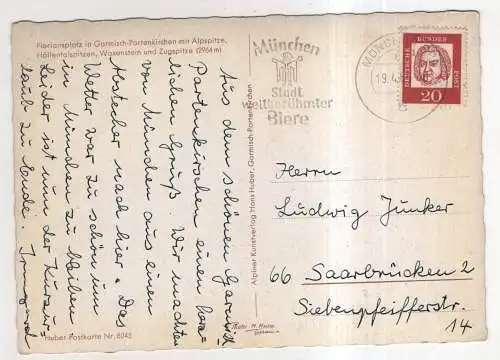 Floriansplatz in Garmisch-Partenkirchen mit Alpspitze,
Höllentalspitzen, Waxenstein und Zugspitze (2964 m)
Aus dem schönen Garmisch
Partenkirchen einen herz-
lichen Gruß. Wir machten
von München aus einen
Abstecher nach hier. Das
Wetter war zu schön um
in München zu bleiben
Leider ist nun der Kurzur-
laub zu Ende. Irmgard
Huber-Postkarte Nr. 8045
Alpiner Kunstverlag Hans Huber, Garmisch-Partenkirchen
München
Stadt
weltberühmter
Biere
MÜNCHEN
19.4
DEUTSCHE
BUNDES
POST
20
Herrn
Ludwig Junker
66 Saarbrücken 2
Siebenpfeifferstr.
14